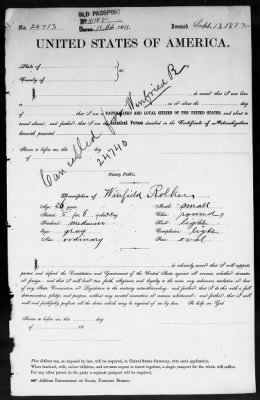 OLD PASSPORT
No. 24713 Issued Sept. 13, 1872
UNITED STATES OF AMERICA.
State of
County of
I, do swear that I was born
in on or about the day
of that I am a NATURALIZED AND LOYAL CITIZEN OF THE UNITED STATES and about
to travel abroad, and further that I am the Identical Person described in the Certificate of Naturalization
herewith presented
Sworn to before me, this day
of
Cancelled for Winfried R.
24740
Notary Public.
Description of Winfield
Age: 26 years Mouth: small
Stature: 5 feet 6 inches, Eng. Chin: round
Forehead: medium Hair: light
Eyes: gray Complexion: light
Nose: ordinary Face: oval
I, do solemnly swear that I will support,
protect and defend the Constitution and Government of the United States against all enemies, whether domestic
or foreign, and that I will bear true faith, allegiance and loyalty to the same, any ordinance, resolution or law
of any State Convention or Legislature to the contrary notwithstanding; and further, that I do this with a full
determination, pledge, and purpose, without any mental reservation or evasion whatsoever; and further, that I will
well and faithfully perform all the duties which may be required of me by law. So help me God
Sworn to before me, this day
of 18
Five dollars tax, as imposed by law, will be required, in United States Currency, with each application.
When husband, wife, minor children, and servants expect to travel together, a single passport for the whole will suffice.
For any other person in the party a separate passport will be required.
Address DEPARTMENT OF STATE, PASSPORT BUREAU.